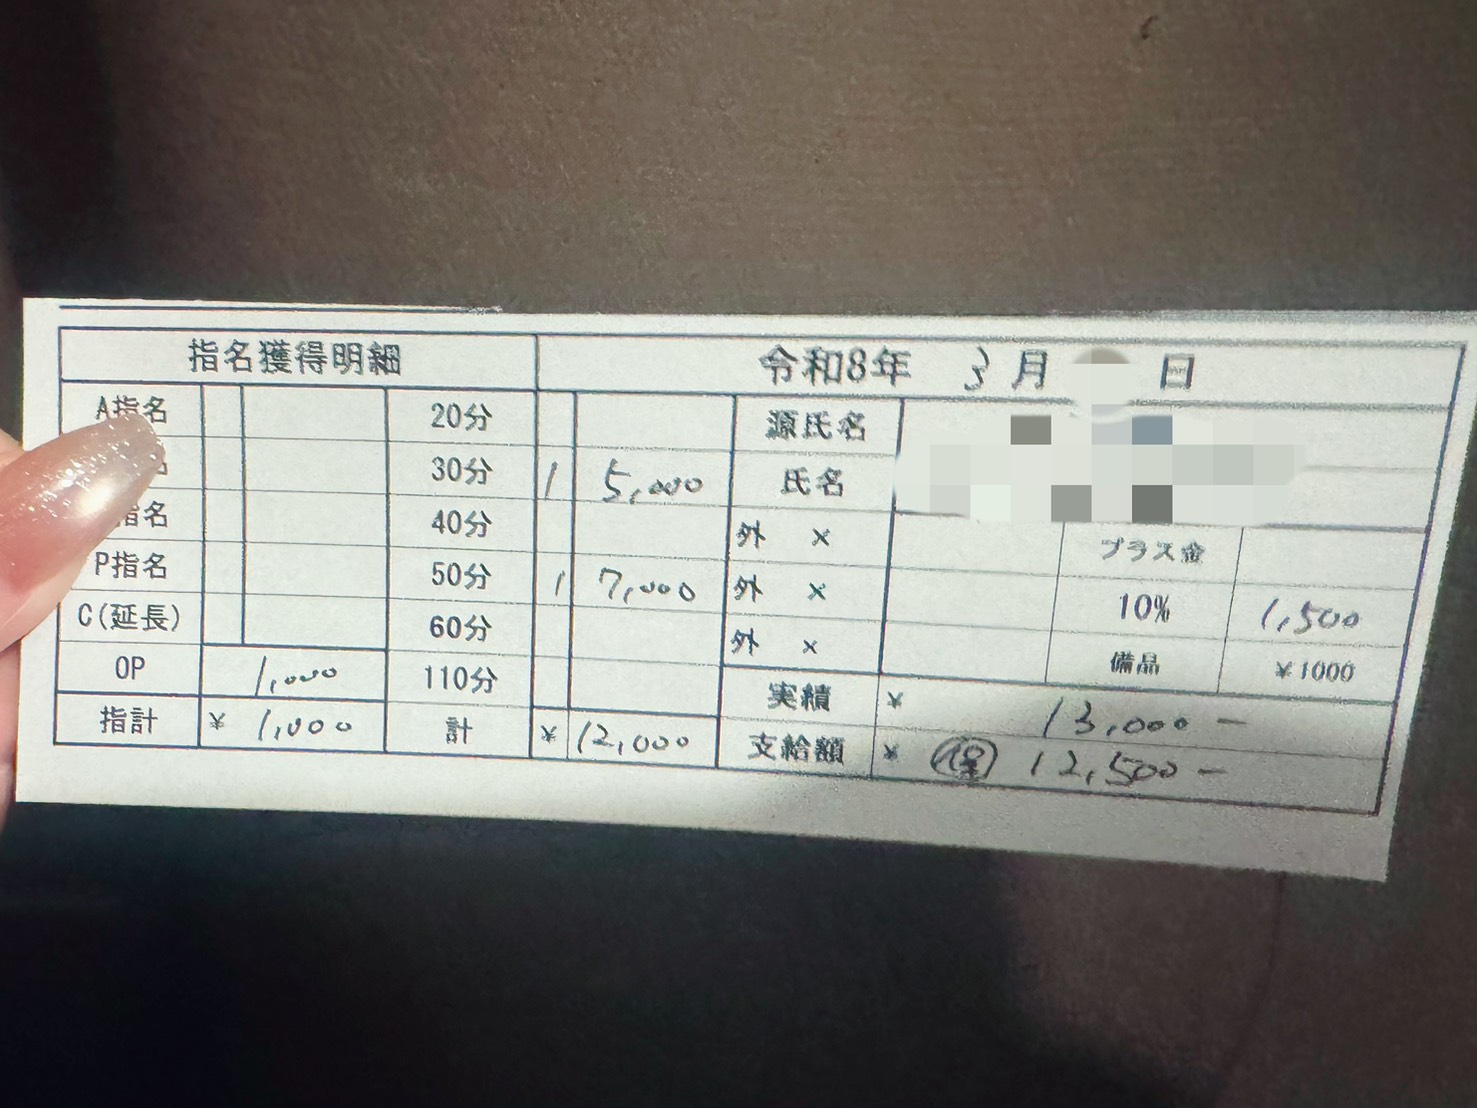 指名獲得明細 令和8年 3月 日
A指名 20分 源氏名
30分 1 5,000 氏名
指名 40分 外 × プラス金
P指名 50分 1 7,000 外 × 10% 1,500
C(延長) 60分 外 × 備品 ¥1000
OP 1,000 110分 実績 ¥ 13,000-
指計 ¥ 1,000 計 ¥ 12,000 支給額 ¥ 保 12,500-